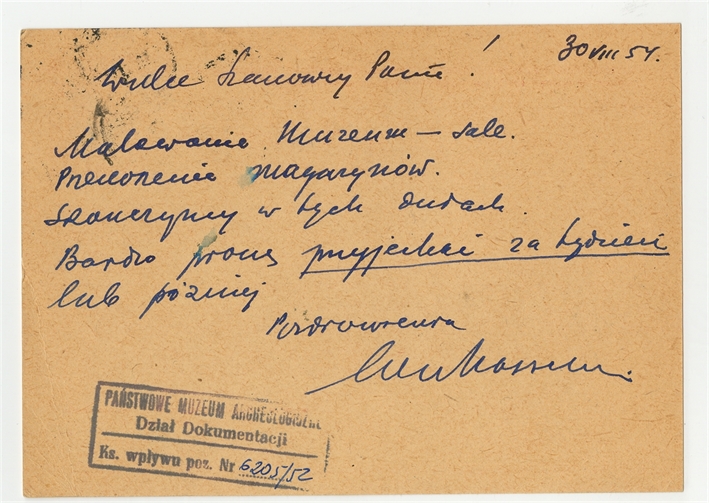 30 VIII 54.
Wielce Szanowny Panie!
Malowanie Muzeum — sale.
Przenoszenie magazynów.
Skończymy w tych dniach.
Bardzo proszę przyjechać za tydzień
lub później
Pozdrowienia
PAŃSTWOWE MUZEUM ARCHEOLOGICZNE
Dział Dokumentacji
Ks. wpływu poz. Nr 6205/52